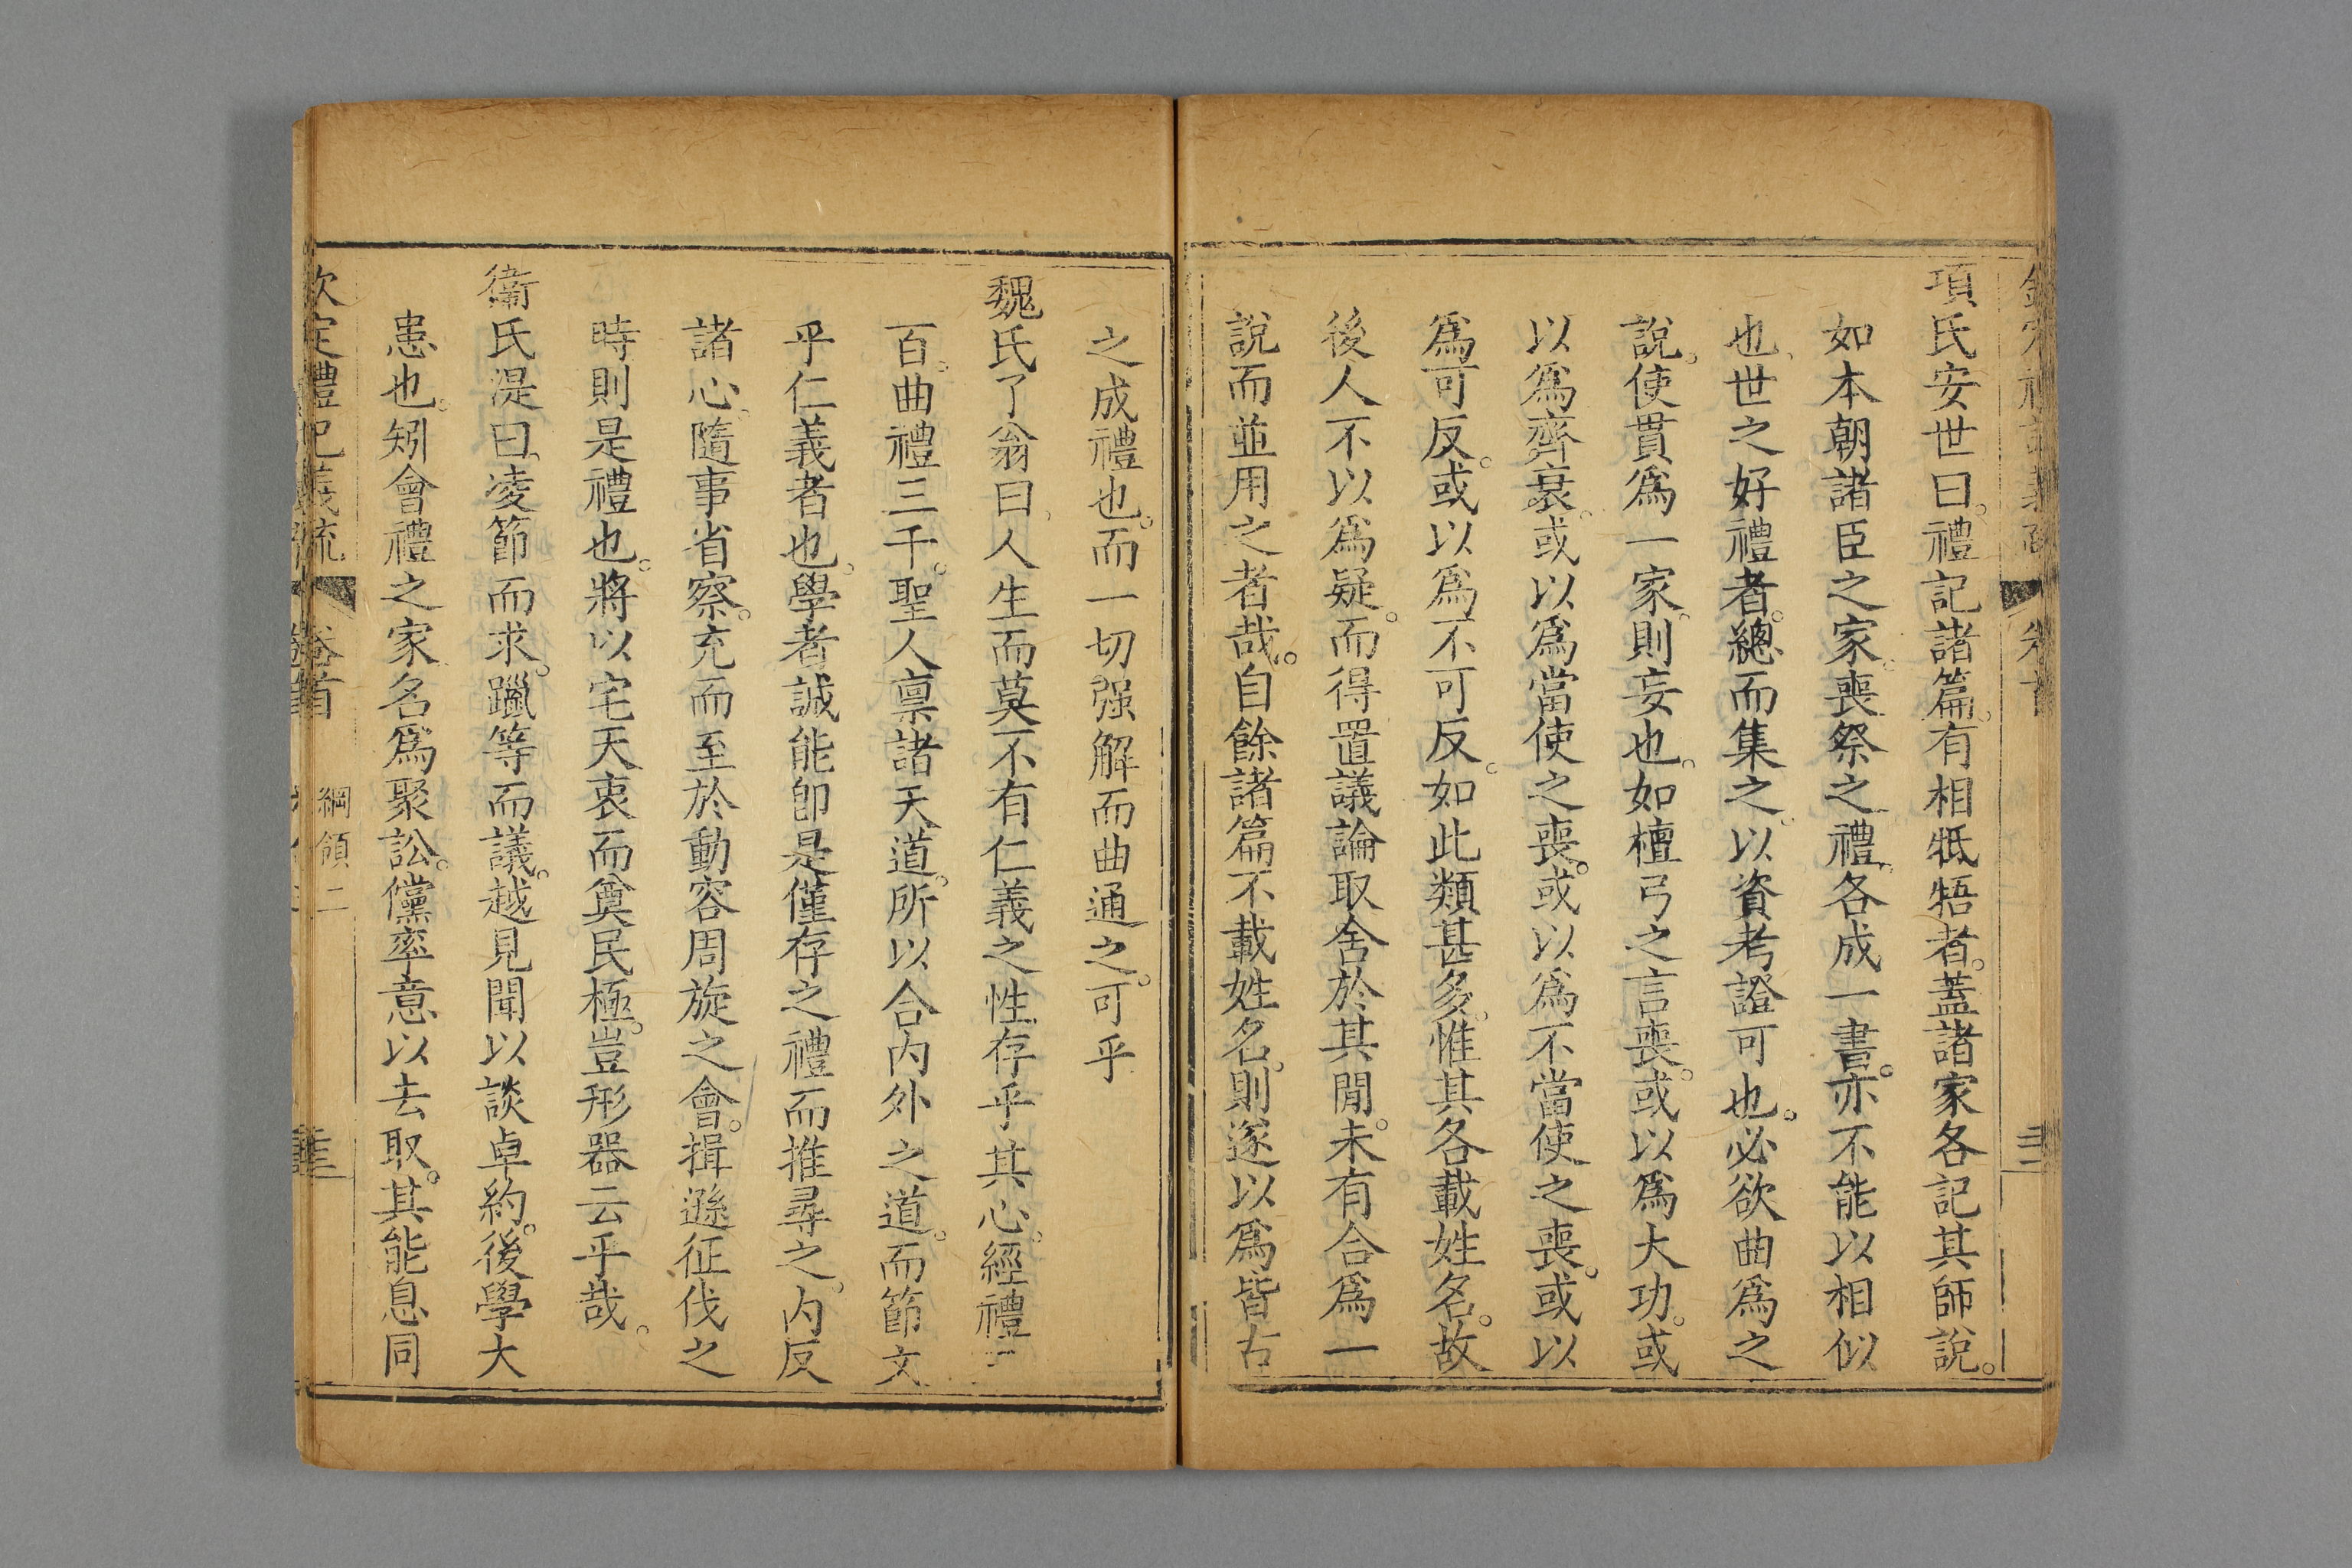 項氏安世曰。禮記諸篇。有相牴牾者。蓋諸家各記其師說。
如本朝諸臣之家。喪祭之禮。各成一書。亦不能以相似
也。世之好禮者。總而集之。以資考證可也。必欲曲爲之
說。使貫爲一家。則妄也。如檀弓之言喪。或以爲大功。或
以爲齊衰。或以爲當使之喪。或以爲不當使之喪。或以
爲可反。或以爲不可反。如此類甚多。惟其各載姓名。故
後人不以爲疑。而得置議論取舍於其閒。未有合爲一
說而並用之者哉。自餘諸篇不載姓名。則遂以爲皆古
之成禮也。而一切强解而曲通之。可乎
魏氏了翁曰。人生而莫不有仁義之性存乎其心。經禮三
百。曲禮三千。聖人稟諸天道。所以合內外之道。而節文
乎仁義者也。學者誠能卽是僅存之禮而推尋之。內反
諸心。隨事省察。充而至於動容周旋之會。揖遜征伐之
時則是禮也。將以宅天衷而奠民極。豈形器云乎哉。
衞氏湜曰。凌節而求。躐等而議。越見聞以談卓約。後學大
患也。矧會禮之家名爲聚訟。儻率意以去取。其能息同
欽定禮記義疏 卷首 綱領二